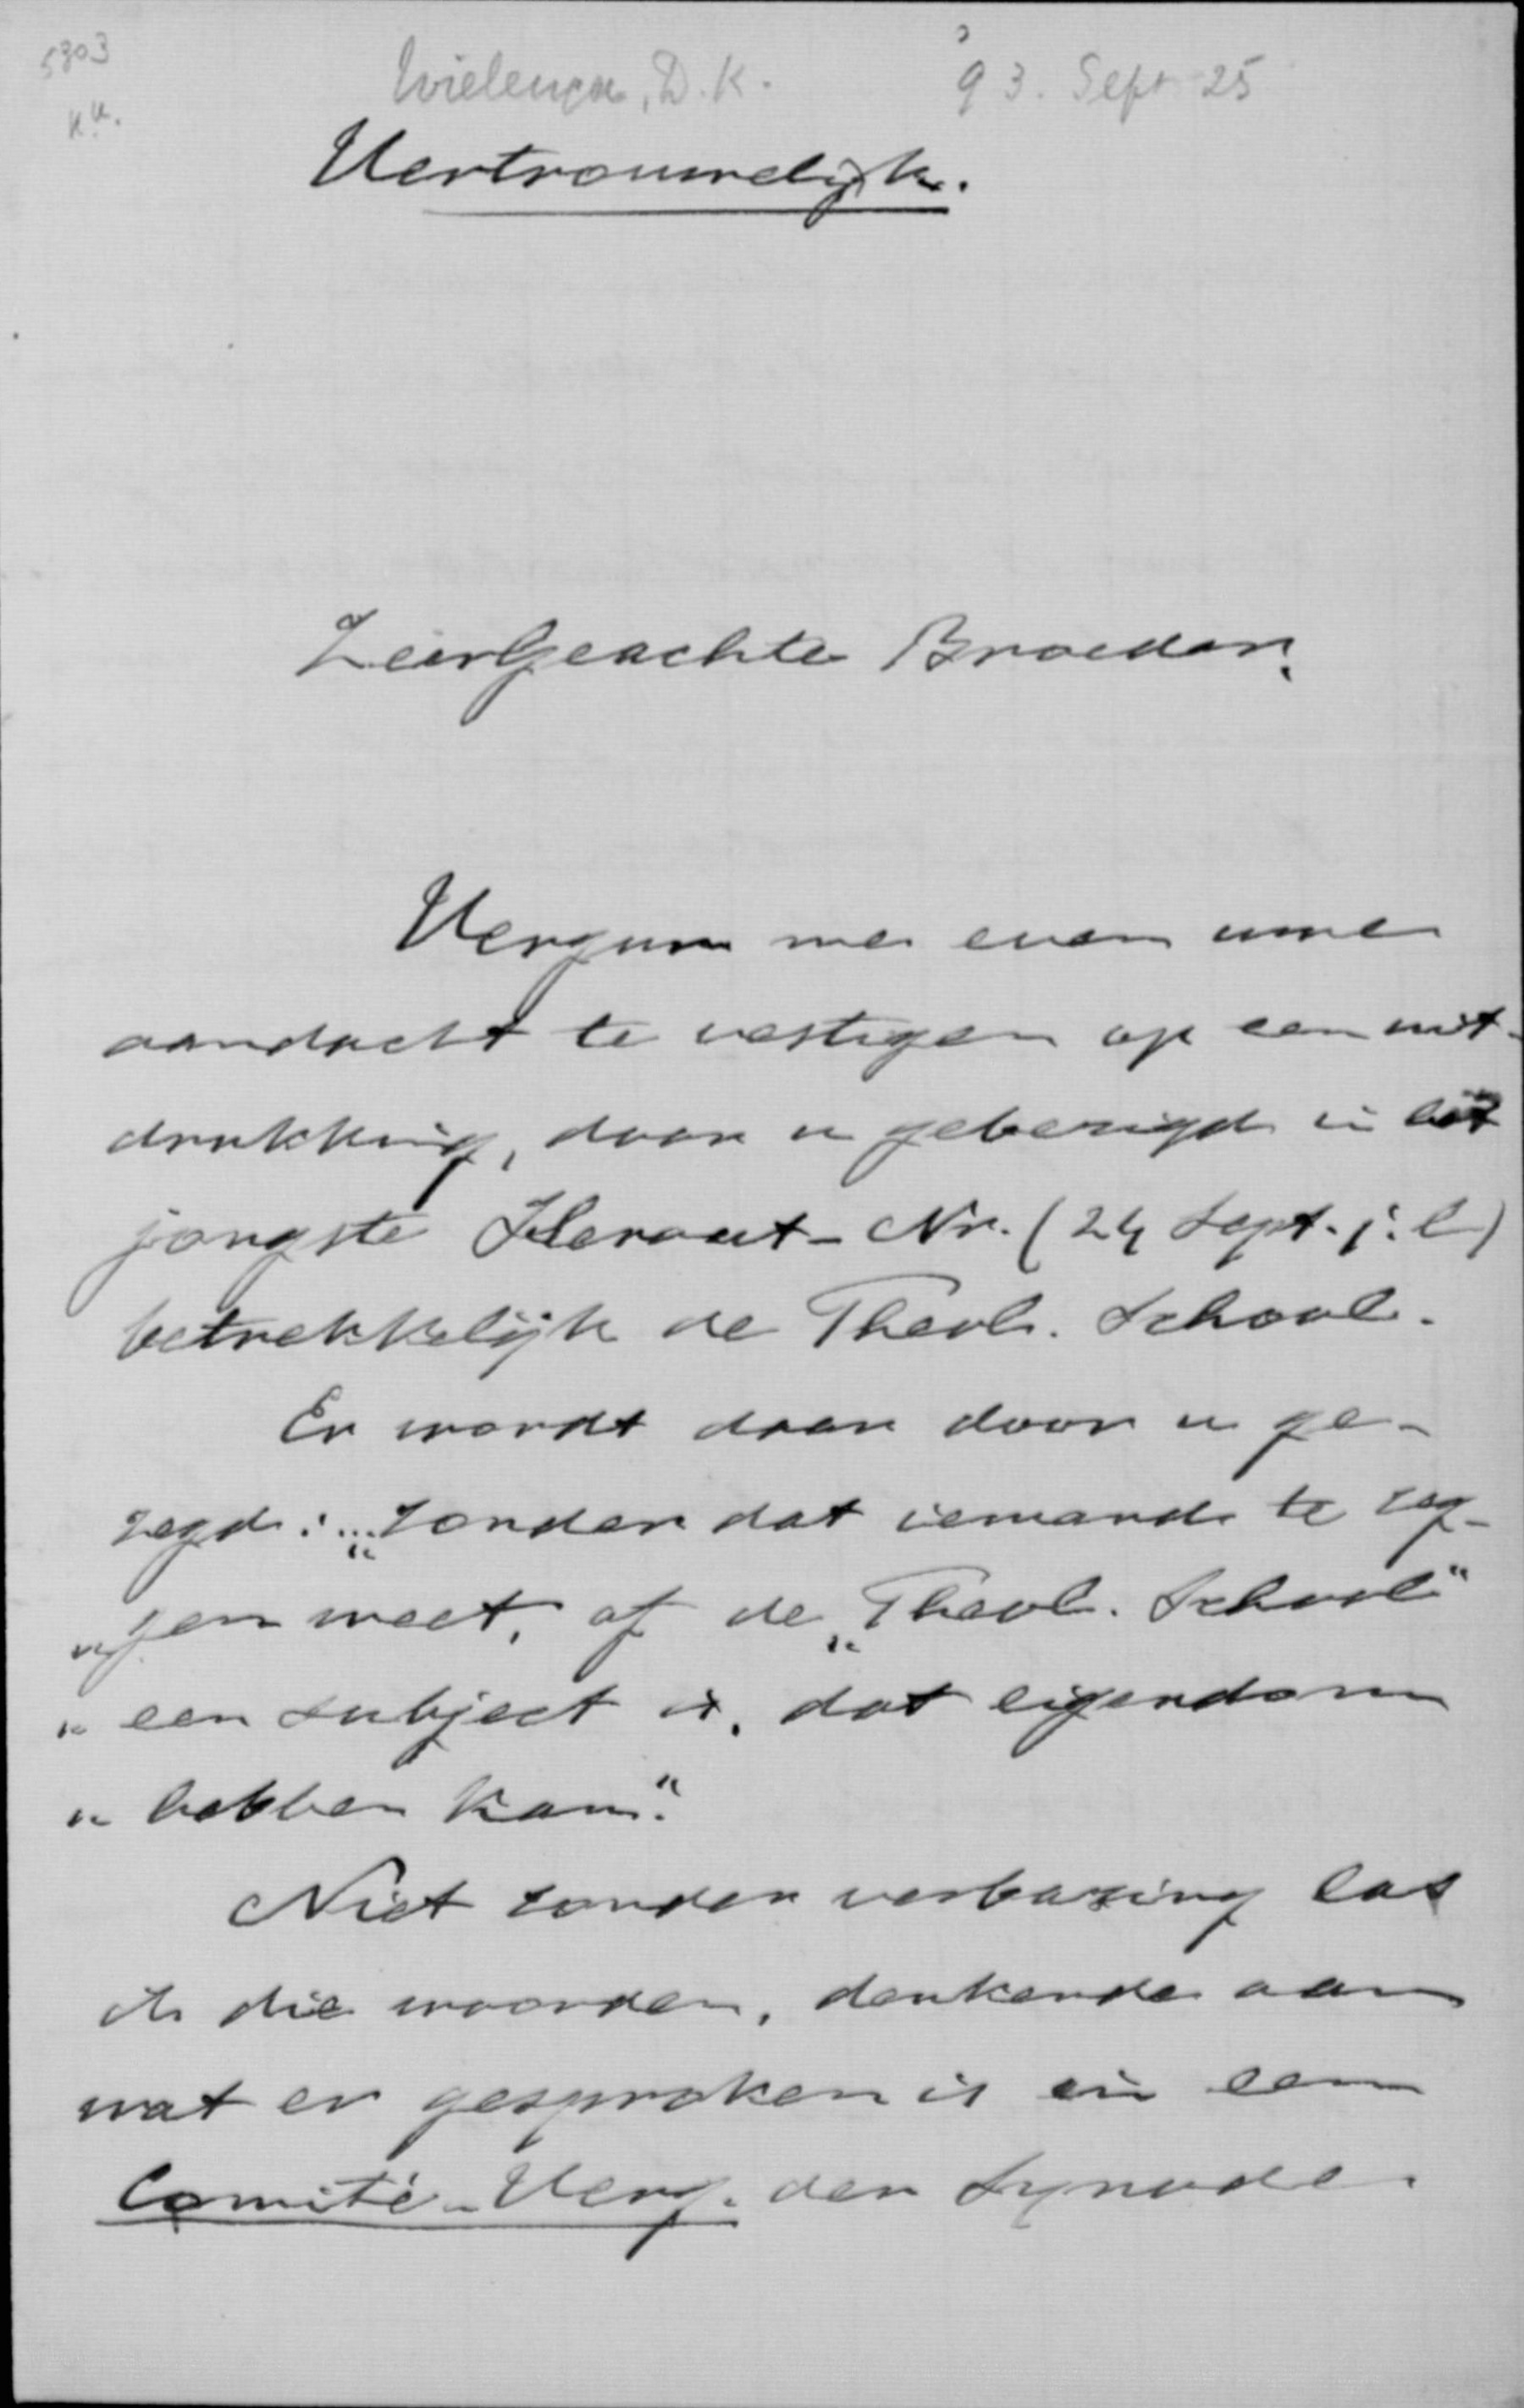 5803
Wielenga, D.K.
93. Sept 25
K.K.
Vertrouwelijk.
ZeerGeachte Broeder,
Vergun me even uwe
aandacht te vestigen op een uit-
drukking, door u gebezigd in het
jongste Heraut-Nr. (24 Sept. j.l)
betrekkelijk de Theol. School.
Er wordt daar door u ge-
zegd: „... zonder dat iemand te zeg-
„gen weet, of de „Theol. School"
„een subject is, dat eigendom
„hebben kan".
Niet zonder verbazing las
ik die woorden, denkende aan
wat er gesproken is in een
Comité-Verg. der Synode